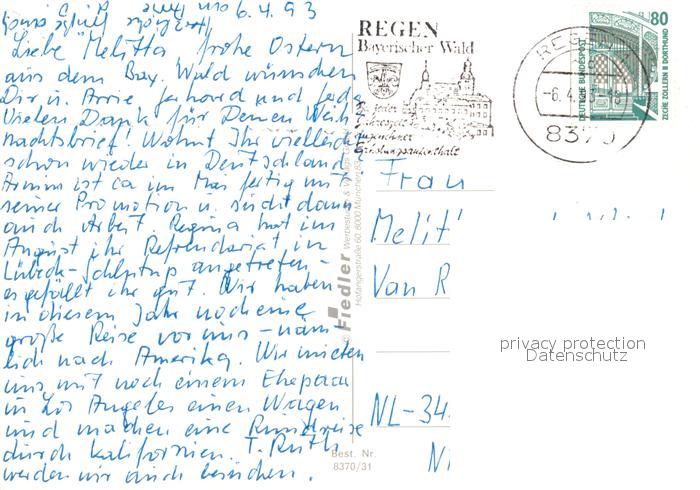 6.4.93
Liebe Melitta frohe Ostern
aus dem Bay. Wald wünschen
Dir u. Arne, Gerhard und
Vielen Dank für Deinen Weih
nachtsbrief! Wohnt Ihr vielleicht
schon wieder in Deutschland
Armin ist ca im Mai fertig mit
seiner Promotion u. sucht dann
auch Arbeit. Regina hat im
August ihr Referendariat in
Lübeck-Schlutup angetreten -
es gefällt ihr gut. Wir haben
in diesem Jahr noch eine
große Reise vor uns - näm
lich nach Amerika. Wir mieten
uns mit noch einem Ehepaar
in Los Angeles einen Wagen
und machen eine Rundreise
durch Kalifornien. T. Ruth
werden wir auch besuchen.
REGEN
Bayerischer Wald
Erholungsaufenthalt
REGEN
-6.4.93-
8370
80
DEUTSCHE BUNDESPOST
ZECHE ZOLLERN II DORTMUND
Fiedler Werbestudio & Verlags
Hofangerstraße 60, 8000 München
Frau
Melit
Van R
NL-34
N
Best. Nr.
8370/31
privacy protection
Datenschutz